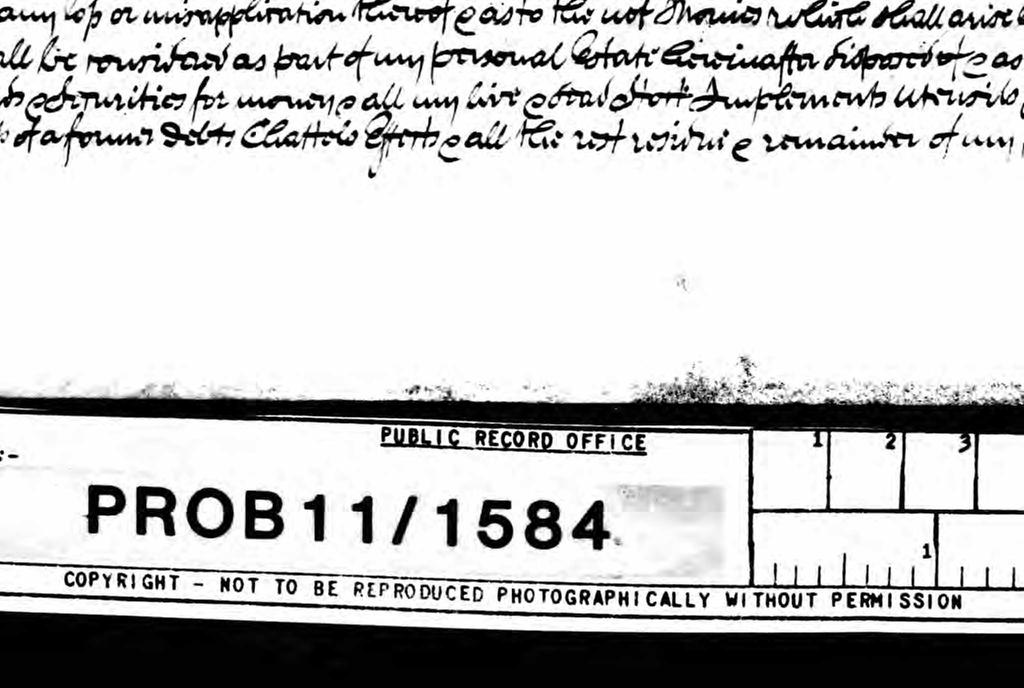 any loss or misapplication thereof & as to the use of Monies which shall arise
all be considered as part of my personal Estate hereinafter disposed of & as
& Securities for money & all my live & dead Stock Implements Utensils
of a farmer Debts Chattels Effects & all the rest residue & remainder of my
PUBLIC RECORD OFFICE
1 2 3
:-
PROB 11/1584
1
COPYRIGHT - NOT TO BE REPRODUCED PHOTOGRAPHICALLY WITHOUT PERMISSION